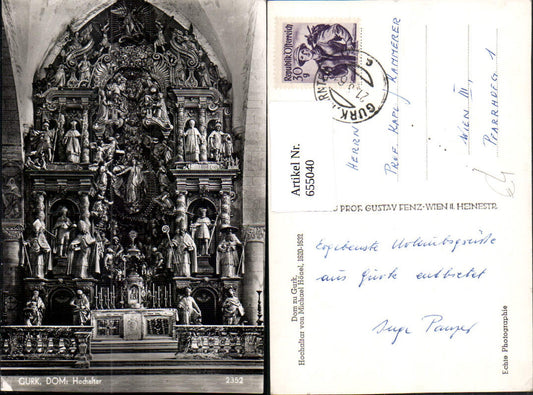 GURK, DOM: Hochalter 2352
Republik Österreich
30 g
GURK
Artikel Nr.
655040
HERRN
PROF. KARL KAMMERER
WIEN III,
PFARRHOFG 1
PROF. GUSTAV FENZ·WIEN II. HEINESTR.
Dom zu Gurk,
Hochaltar von Michael Hönel, 1626-1632
Ergebenste Urlaubsgrüße
aus Gurk entbietet
Inge Panzer
Echte Photographie